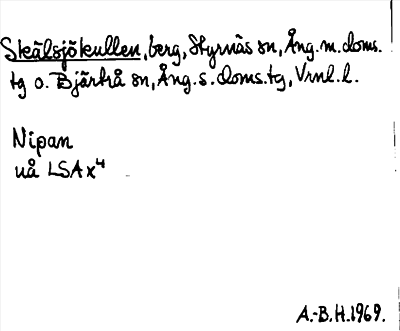 Skälsjökullen, berg, Styrnäs sn, Ång. m. doms.
tg o. Bjärtrå sn, Ång. s. doms. tg, Vrnl. l.
Nipan
uå LSA x4
A.-B. H. 1969.